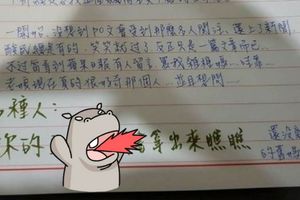 一開始,沒想到PO文會受到那麼多人關注,還上了新聞
酸民總是有的,笑笑就過了,反正只是一篇文章而已
不過當看到蘋果日報有人留言,罵我錯媽嗎…
老娘現在真的很好奇那個人,並且想問
種人:
你的
拿出來瞧瞧
還沒
的舊